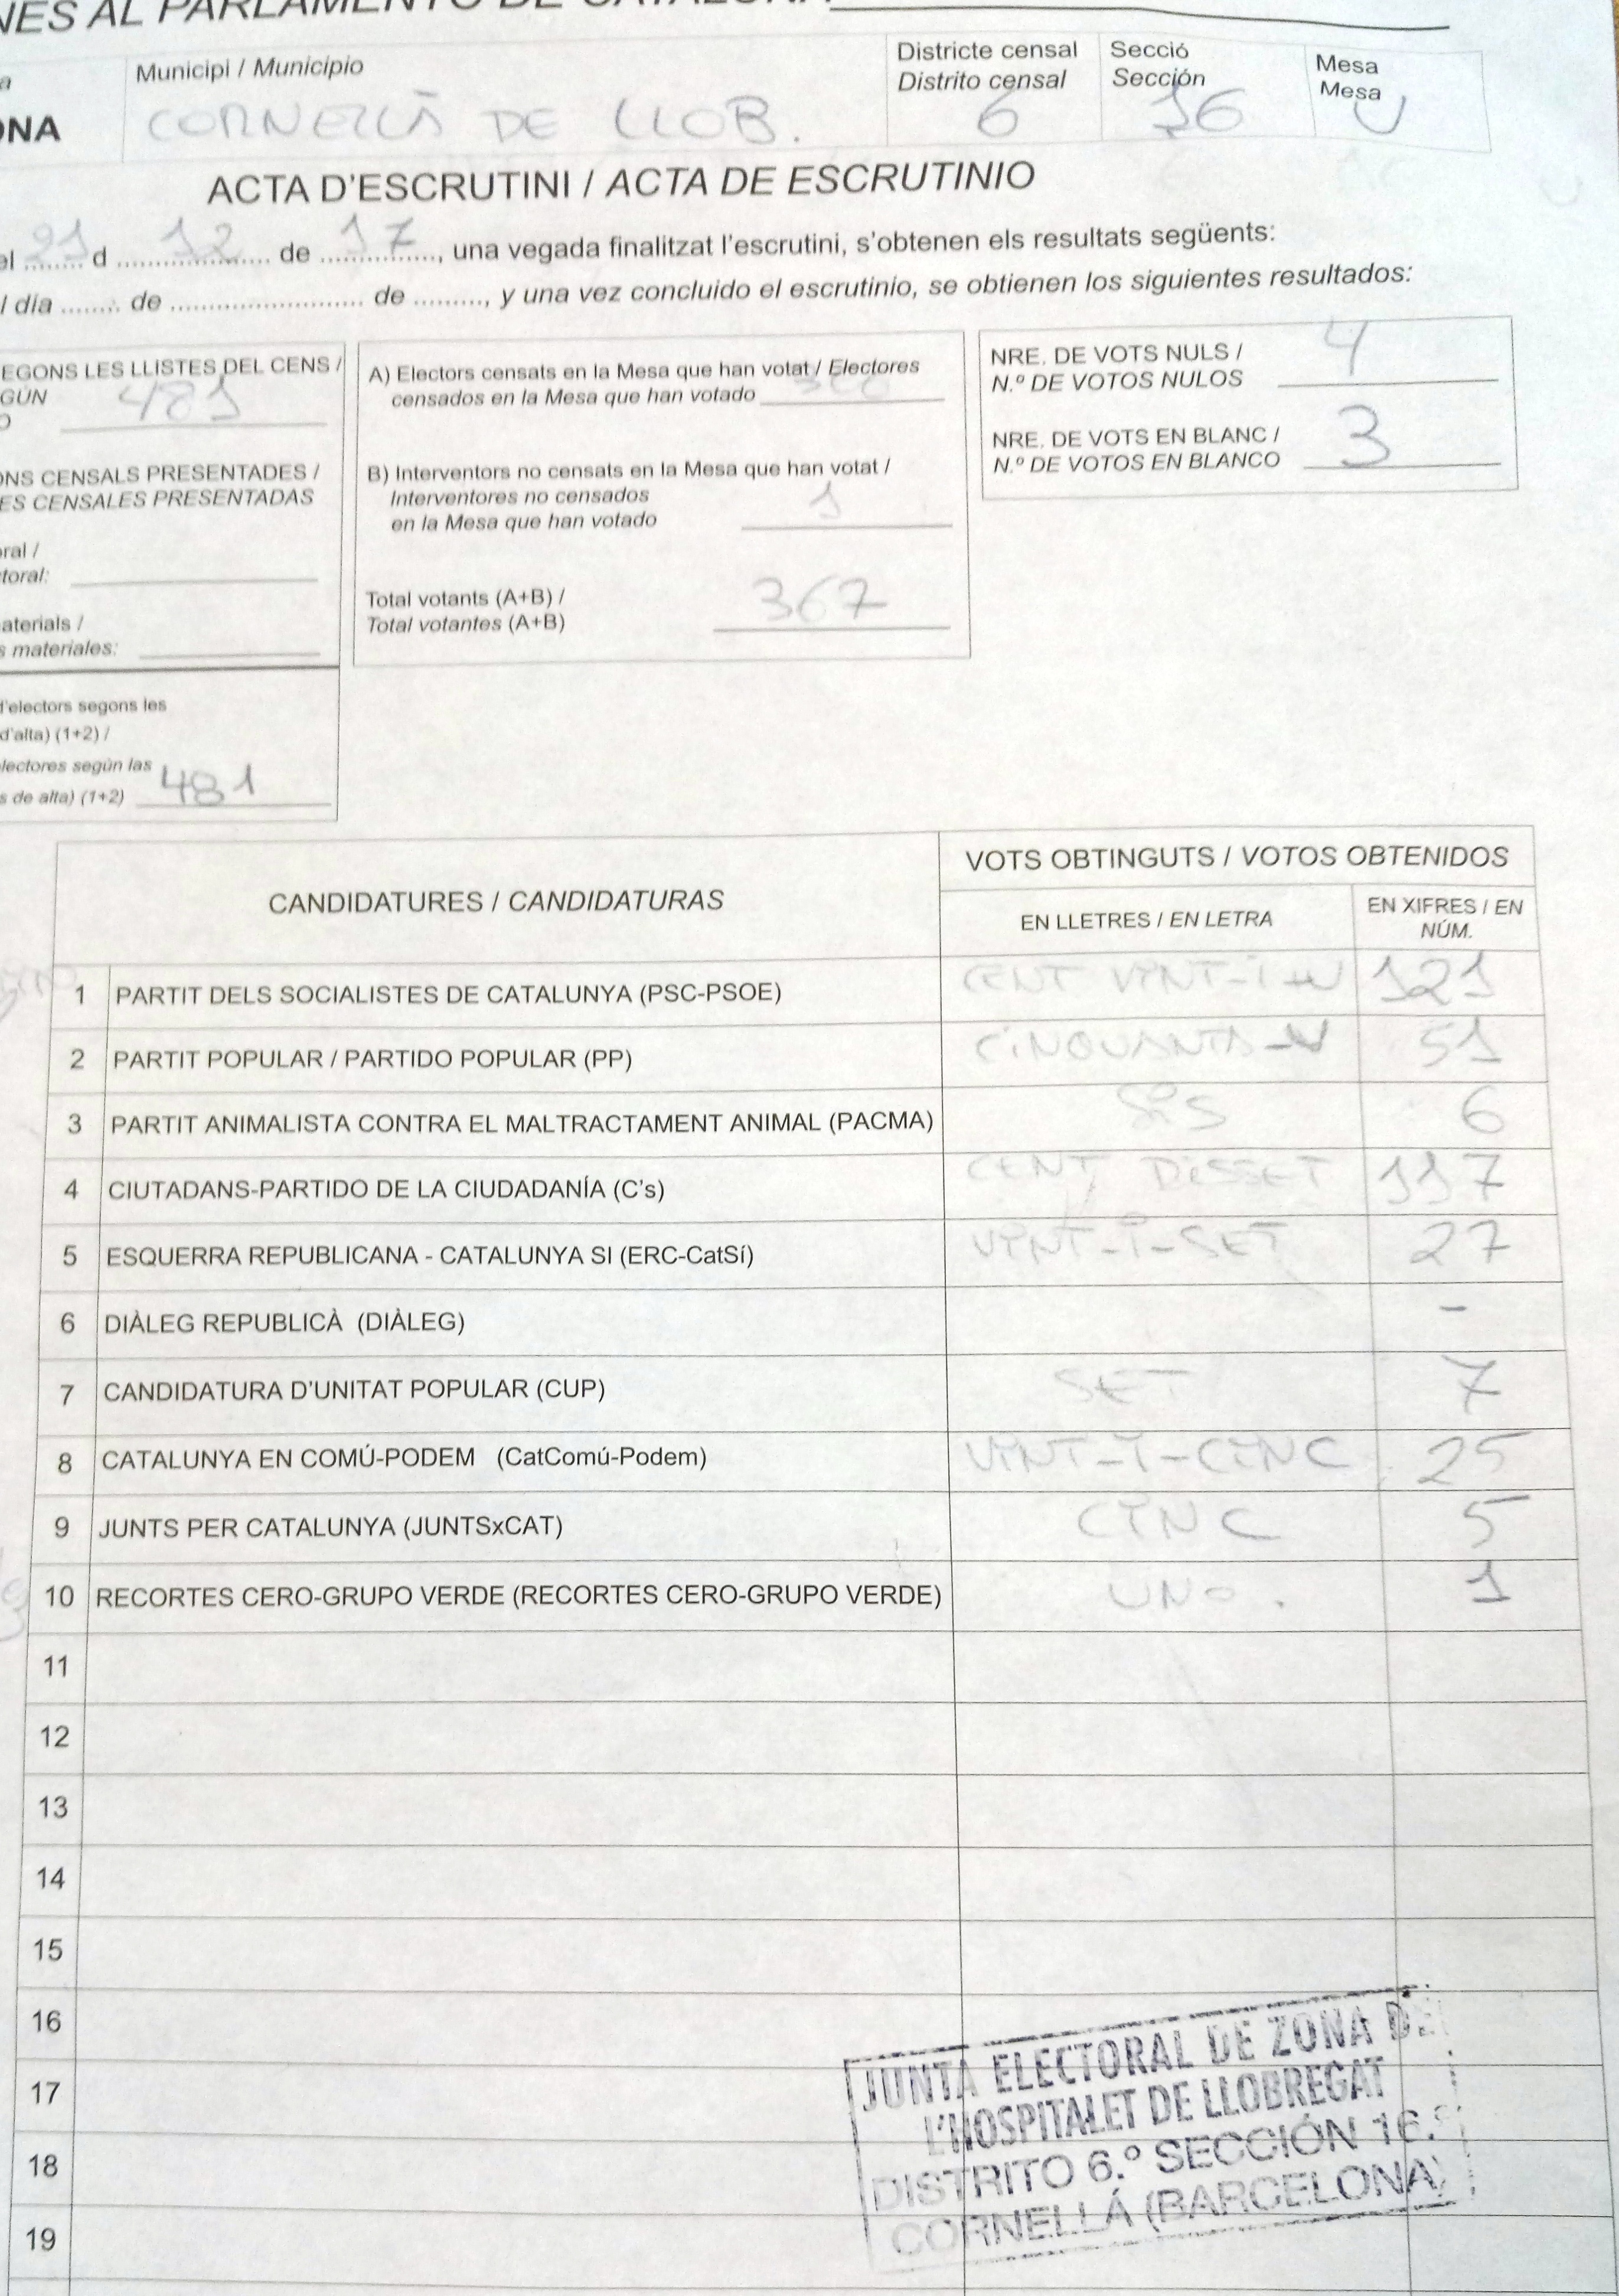 NES AL PARLAMENTO DE CATALUÑA
Municipi / Municipio
Districte censal
Distrito censal
Secció
Sección
Mesa
Mesa
ONA
CORNELLÀ DE LLOB.
6
16
U
ACTA D'ESCRUTINI / ACTA DE ESCRUTINIO
el 21 d 12 de 17, una vegada finalitzat l'escrutini, s'obtenen els resultats següents:
l día ........ de ........................ de ........., y una vez concluido el escrutinio, se obtienen los siguientes resultados:
EGONS LES LLISTES DEL CENS /
GÚN
O
481
ONS CENSALS PRESENTADES /
ES CENSALES PRESENTADAS
oral /
toral:
aterials /
s materiales:
d'electors segons les
d'alta) (1+2) /
lectores según las
s de alta) (1+2) 481
A) Electors censats en la Mesa que han votat / Electores
censados en la Mesa que han votado 366
B) Interventors no censats en la Mesa que han votat /
Interventores no censados
en la Mesa que han votado 1
Total votants (A+B) /
Total votantes (A+B) 367
NRE. DE VOTS NULS /
N.º DE VOTOS NULOS 4
NRE. DE VOTS EN BLANC /
N.º DE VOTOS EN BLANCO 3
CANDIDATURES / CANDIDATURAS
VOTS OBTINGUTS / VOTOS OBTENIDOS
EN LLETRES / EN LETRA
EN XIFRES / EN
NÚM.
1 PARTIT DELS SOCIALISTES DE CATALUNYA (PSC-PSOE) CENT VINT-I-U 121
2 PARTIT POPULAR / PARTIDO POPULAR (PP) CINQUANTA-U 51
3 PARTIT ANIMALISTA CONTRA EL MALTRACTAMENT ANIMAL (PACMA) SIS 6
4 CIUTADANS-PARTIDO DE LA CIUDADANÍA (C's) CENT DISSET 117
5 ESQUERRA REPUBLICANA - CATALUNYA SI (ERC-CatSí) VINT-I-SET 27
6 DIÀLEG REPUBLICÀ (DIÀLEG) -
7 CANDIDATURA D'UNITAT POPULAR (CUP) SET 7
8 CATALUNYA EN COMÚ-PODEM (CatComú-Podem) VINT-I-CINC 25
9 JUNTS PER CATALUNYA (JUNTSxCAT) CINC 5
10 RECORTES CERO-GRUPO VERDE (RECORTES CERO-GRUPO VERDE) UNO. 1
11
12
13
14
15
16
17
18
19
JUNTA ELECTORAL DE ZONA DE
L'HOSPITALET DE LLOBREGAT
DISTRITO 6.º SECCIÓN 16.ª
CORNELLÁ (BARCELONA)